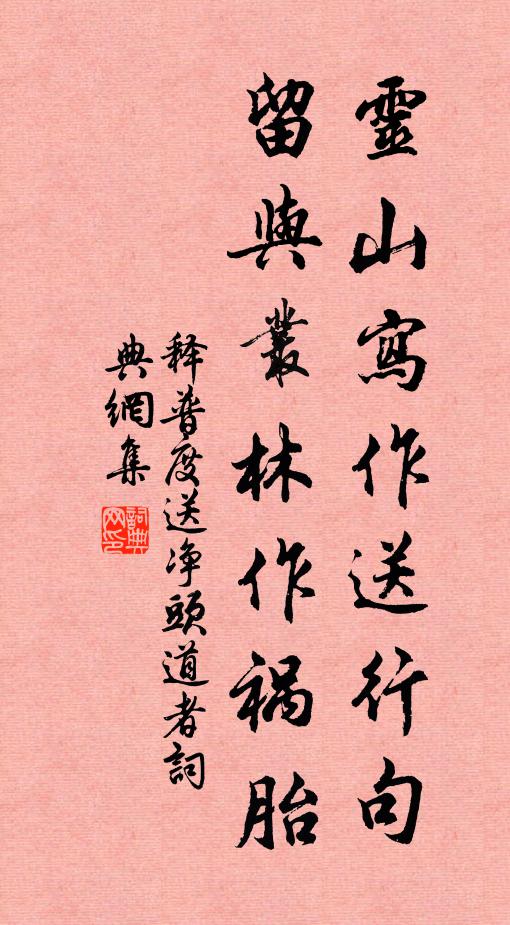 靈山寫作送行句
留與叢林作禍胎
释普度送净頭道者詞
典網集
詞典网印